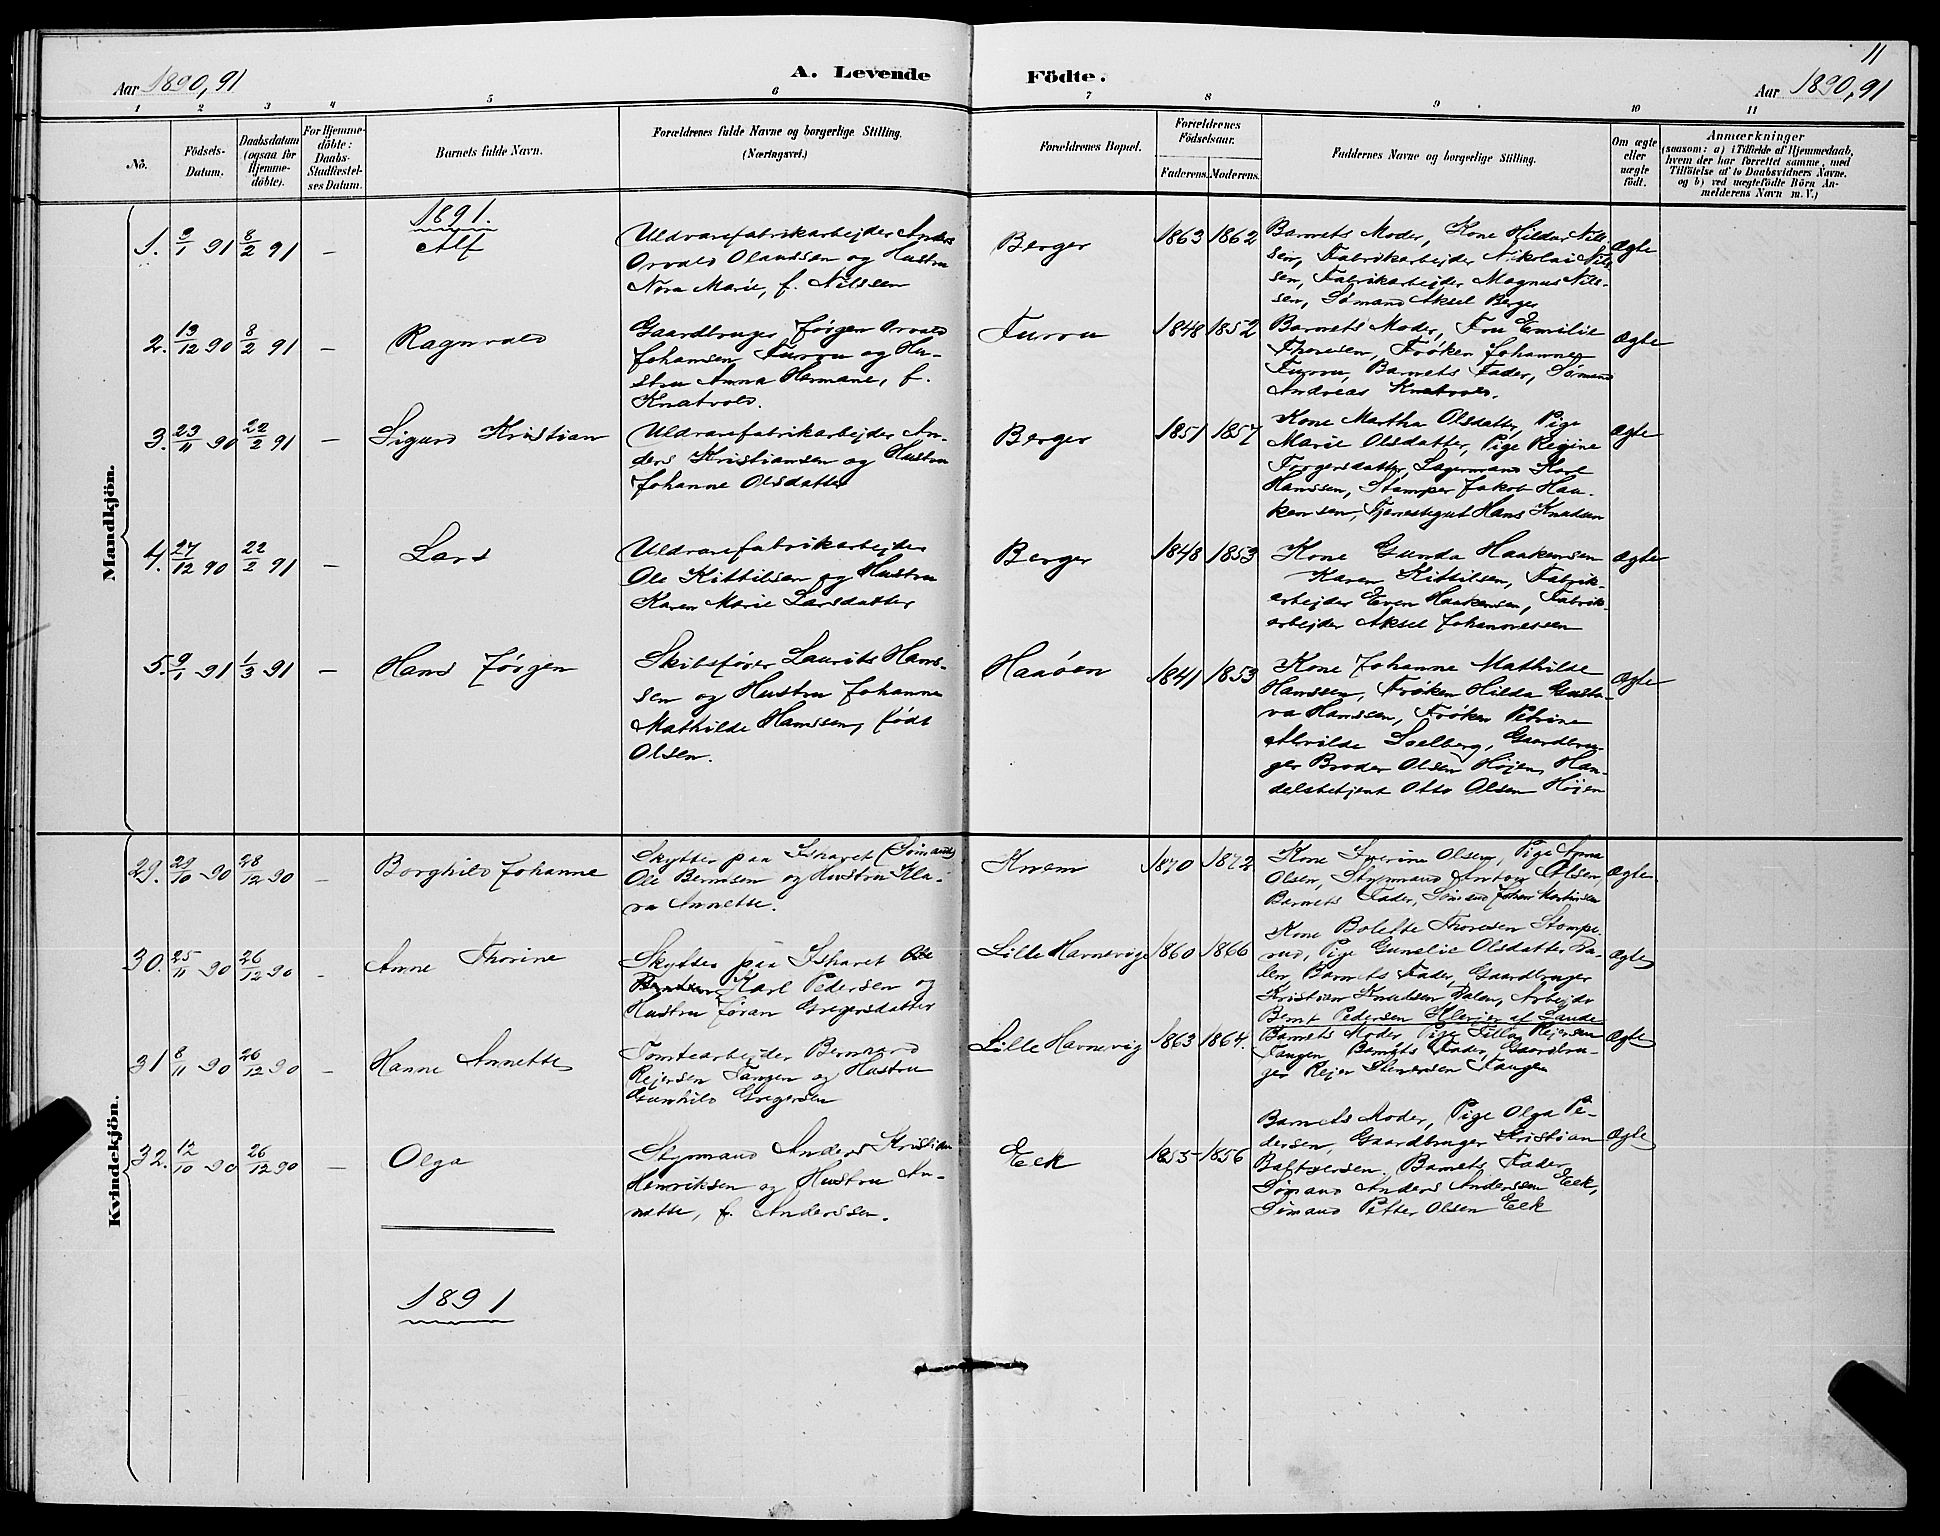 11
Aar 1890,91
A. Levende Födte.
Aar 1890,91
1 2 3 4 5 6 7 8 9 10 11
No.
Födsels-
Datum.
Daabsdatum
(ogsaa for
Hjemme-
döbte).
For Hjemme-
döbte:
Daabs-
Stadfæstel-
ses Datum.
Barnets fulde Navn.
Forældrenes fulde Navne og borgerlige Stilling.
(Næringsvei.)
Forældrenes Bopæl.
Forældrenes
Födselsaar.
Faderens. Moderens.
Faddernes Navne og borgerlige Stilling.
Om ægte
eller
uægte
födt.
Anmærkninger
(saasom: a) i Tilfælde af Hjemmedaab,
hvem der har forrettet samme, med
Tilföielse af to Daabsvidners Navne.
og b) ved uægtefödte Börn An-
melderens Navn m. V.)
Mandkjön.
1891.
1. 9/1 91 8/2 91 – Alf
Uldvarefabrikarbejder Anders
Orvald Olaussen og Hustru
Nora Marie, f. Nilssen
Berger 1863 1862
Barnets Moder, Kone Hildur Nils-
sen, Fabrikarbejder Nikolai Nils-
sen, Fabrikarbejder Magnus Nils-
sen, Sømand Aksel Berger
Ægte
2. 13/12 90 8/2 91 – Ragnvald
Gaardbruger Jørgen Orvald
Johansen Furou og Hu-
stru Anna Hermane, f.
Knatvold.
Furou 1848 1852
Barnets Moder, Fru Emilie
Thoresen, Frøken Johanne
Furou, Barnets Fader, Sømand
Andreas Knatvold.
Ægte
3. 23/11 90 22/2 91 – Sigurd Kristian
Uldvarefabrikarbejder An-
ders Kristiansen og Hustru
Johanne Olsdatter
Berger 1851 1857
Kone Martha Olsdatter, Pige
Marie Olsdatter, Pige Regine
Torgersdatter, Lagermand Karl
Hanssen, Stamper Jakob Haa-
kensen, Tjenestegut Hans Knudsen
Ægte
4. 27/12 90 22/2 91 – Lars
Uldvarefabrikarbejder
Ole Kittilsen og Hustru
Karen Marie Larsdatter
Berger 1848 1853
Kone Gunda Haakensen
Karen Kittilsen, Fabrik-
arbejder Even Haakensen, Fabrik-
arbejder Aksel Johannessen
Ægte
5. 9/1 91 1/3 91 – Hans Jørgen
Skibsfører Laurits Hans-
sen og Hustru Johanne
Mathilde Hanssen, født
Olsen.
Haaøen 1841 1853
Kone Johanne Mathilde
Hanssen, Frøken Hilda Gusta-
va Hanssen, Frøken Petrine
Alvilde Soelberg, Gaardbru-
ger Broder Olsen Højen, Han-
delsbetjent Otto Olsen Højen
Ægte
Kvindekjön.
29. 29/10 90 28/12 90 – Borghild Johanne
Skytter paa Ishavet (Sømand)
Ole Berntsen og Hustru Kla-
ra Annette.
Knem 1870 1872
Kone Severine Olsen, Pige Anna
Olsen, Styrmand Anton Olsen,
Barnets Fader, Sømand Johan Martinsen
Ægte.
30. 25/11 90 26/12 90 – Anne Thorine
Skytter paa Ishavet Ole
Berntsen, Karl Pedersen og
Hustru Jøran Gregersdatter
Lille Havnevig 1860 1866
Kone Bolette Thoresen Stompe-
rud, Pige Gunelie Olsdatter Da-
len, Barnets Fader, Gaardbruger
Kristian Knudsen Dalen, Arbejder
Bernt Pedersen Klevjer af Sande
Ægte
31 8/11 90 26/12 90 – Hanne Annette
Tomtearbejder Bernhard
Rejersen Tangen og Hustru
Gunhild Gregersen
Lille Havnevig 1863 1864.
Barnets Moder, Pige Rejersen
Tangen, Barnets Fader, Gaardbru-
ger Rejer Tangen
Ægte
32. 12/10 90 26/12 90 – Olga
Styrmand Anders Kristian
Henriksen og Hustru An-
nette, f. Anderssen.
Eek 1855 1856
Barnets Moder, Pige Olga Pe-
dersen, Gaardbruger Kristian
Baltzersen, Barnets Fader,
Sømand Anders Anderssen Eek,
Sømand Petter Olsen Eek
Ægte
1891